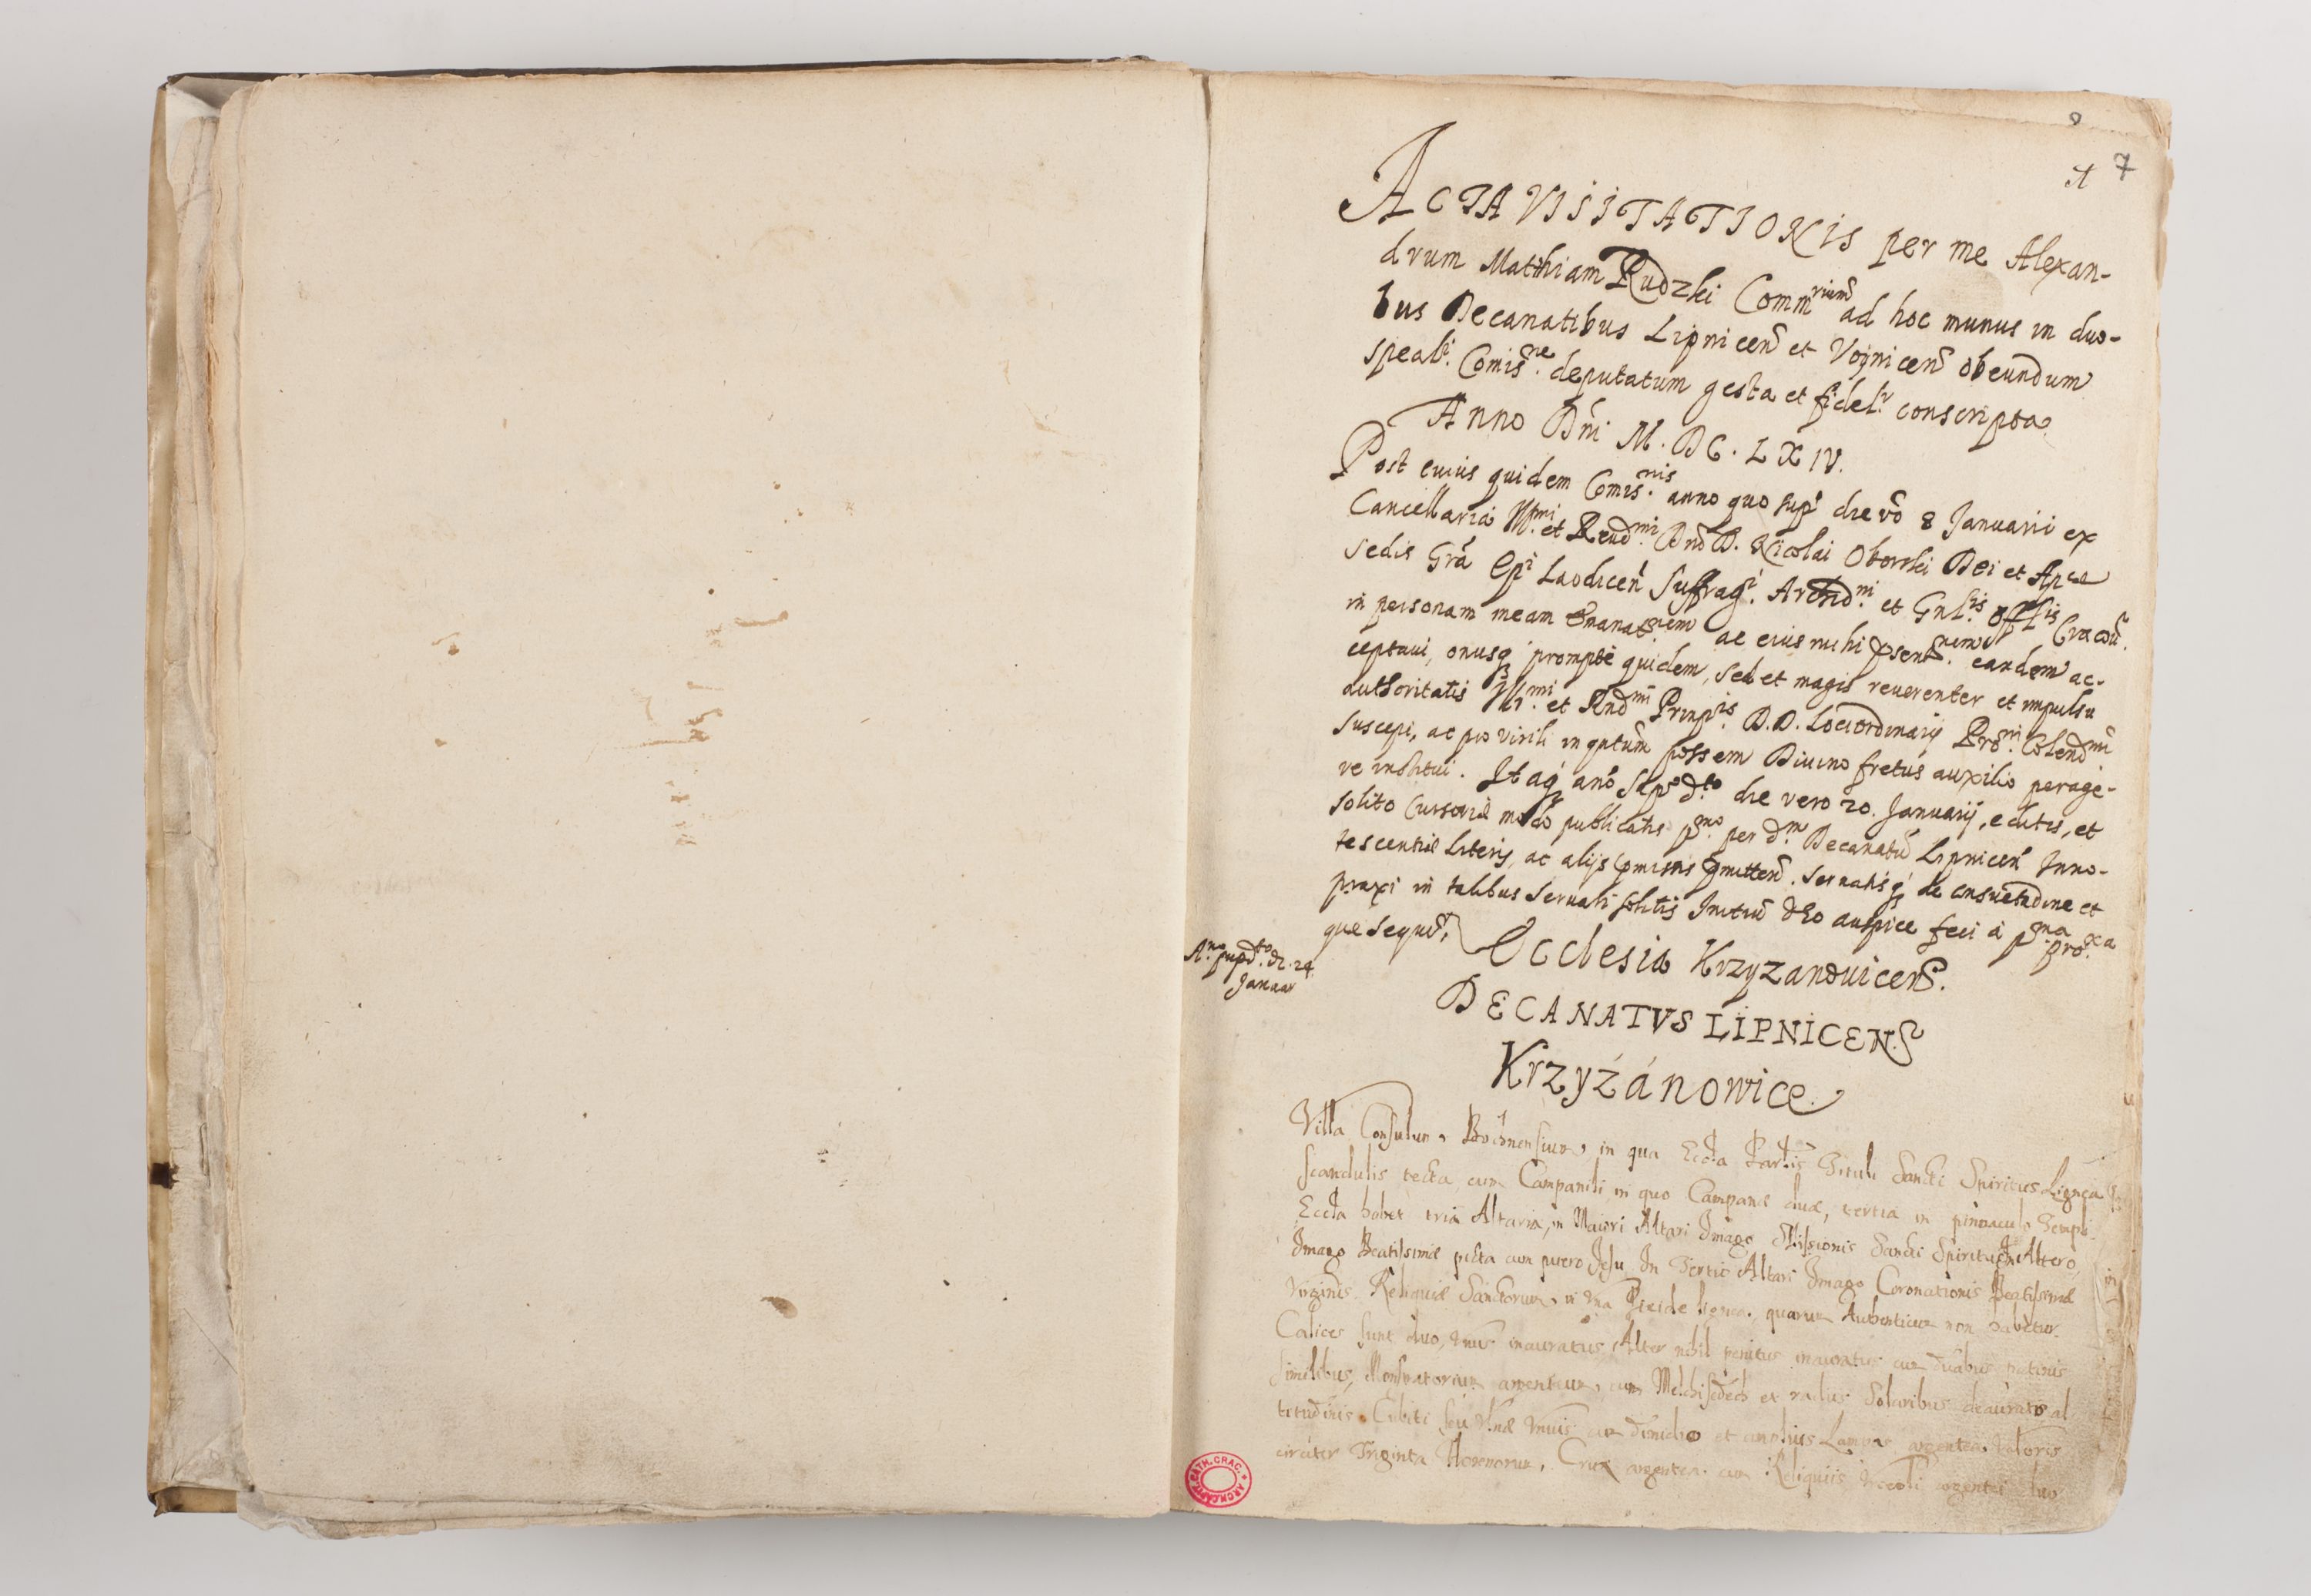 8
A 7
ACTA VISITATIONIS per me Alexan-
drum Matthiam Rudzki Commrium ad hoc munus in duo-
bus Decanatibus Lipnicen et Voynicen obeundum
speali. Comisne. deputatum gesta et fidelr conscripta
Anno Dni M. DC. LXIV.
Post cuius quidem Comis.nis anno quo sup die vo 8 Januarii ex
Cancellaria Illmi. et Reudmi. Dnd D. Nicolai Oborski Dei et Aplce
Sedis Gra Epi Laodicen Suffragi. Archidni. et Gnlis. Offlis Cracou.
in personam meam emanatnem ac eius mihi psentnem. eandem ac-
ceptaui, onusq prompte quidem, sed et magis reuerenter et impulsu
authoritatis Illmi. et Rndmi Prinpis. D. D. Lociordinarij Dromi. Colendmi
suscepi, ac pro virili inqutum possem Diuino fretus auxilio perage-
re institui. Itaq ano Supodto die vero 20. Januarij, editis, et
solito Cursoriae modo publicatis pmo. per dm. Decanatu Lipnicen Inno-
tescentiae Literis, ac alijs pmissis pmitten. seruatisq de consuetudine et
praxi in talibus seruari solitis Initiu dEo auspice feci a pma proxa.
quae sequr,
Ecclesia Krzyzanouicens.
Ano. supdto. di. 24
Januar
DECANATVS LIPNICENS
Krzyżánowice
Villa Consulum Bochnensium, in qua Eccla Parlis Tituli Sancti Spiritus Lignea
scandulis tecta, cum Campanili, in quo Campanae duae, tertia in pinnaculo Templi.
Eccla habet tria Altaria, in Maiori Altari Imago Missionis Sancti Spiritus In Altero,
Imago Beatissimae picta cum puero Jesu In Tertio Altari Imago Coronationis Beatissimae
Virginis. Reliquiae Sanctorum, in Vna Pixide lignea, quarum Authenticum non habetur.
Calices sunt duo, Vnus inauratus, Alter nihil penitus inauratus cum duabus patinis
similibus, Monstratorium argenteum, cum Melchisedech et radiis Solaribus deauratis al
titudinis Cubiti seu Vlnae Vnius cum dimidio et amplius Lampas argentea Valoris
circiter Triginta florenorum, Crux argentea cum Reliquiis Vrceoli argentei duo
ARCH. CAPIT. CATH. CRAC.